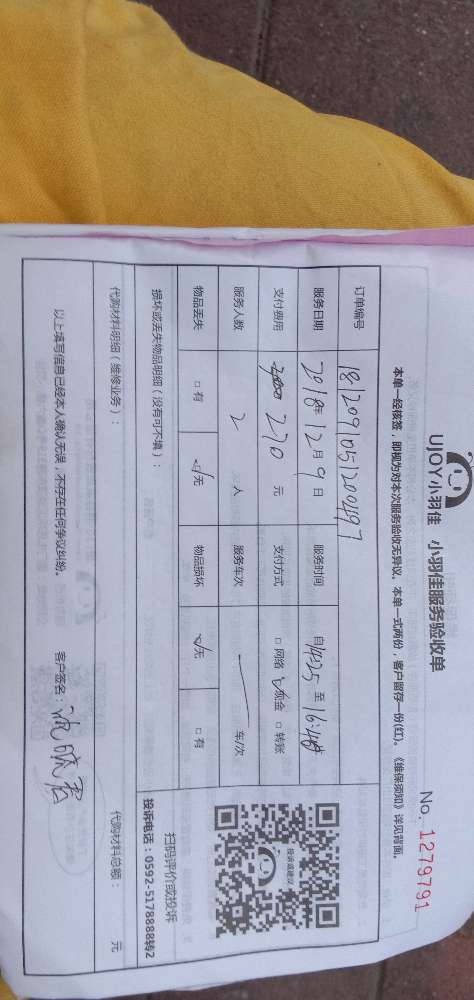 UJOY小羽佳 小羽佳服务验收单
No. 1279791
本单一经核签，即视为对本次服务验收无异议。本单一式两份，客户留存一份(红)。《维保须知》详见背面。
订单编号 18120910512004497
服务日期 2018年12月9日 服务时间 自14:25至16:40
支付费用 270元 支付方式 □网络 ☑现金 □转账
服务人数 2人 服务车次 一车/次
物品丢失 □有 ☑无 物品损坏 ☑无 □有
投诉或建议
扫码评价或投诉
投诉电话：0592-5178888转2
损坏或丢失物品明细（没有可不填）：
代购材料明细（维修业务）： 代购材料总额： 元
以上填写信息已经本人确认无误，不存在任何争议纠纷。 客户签名：